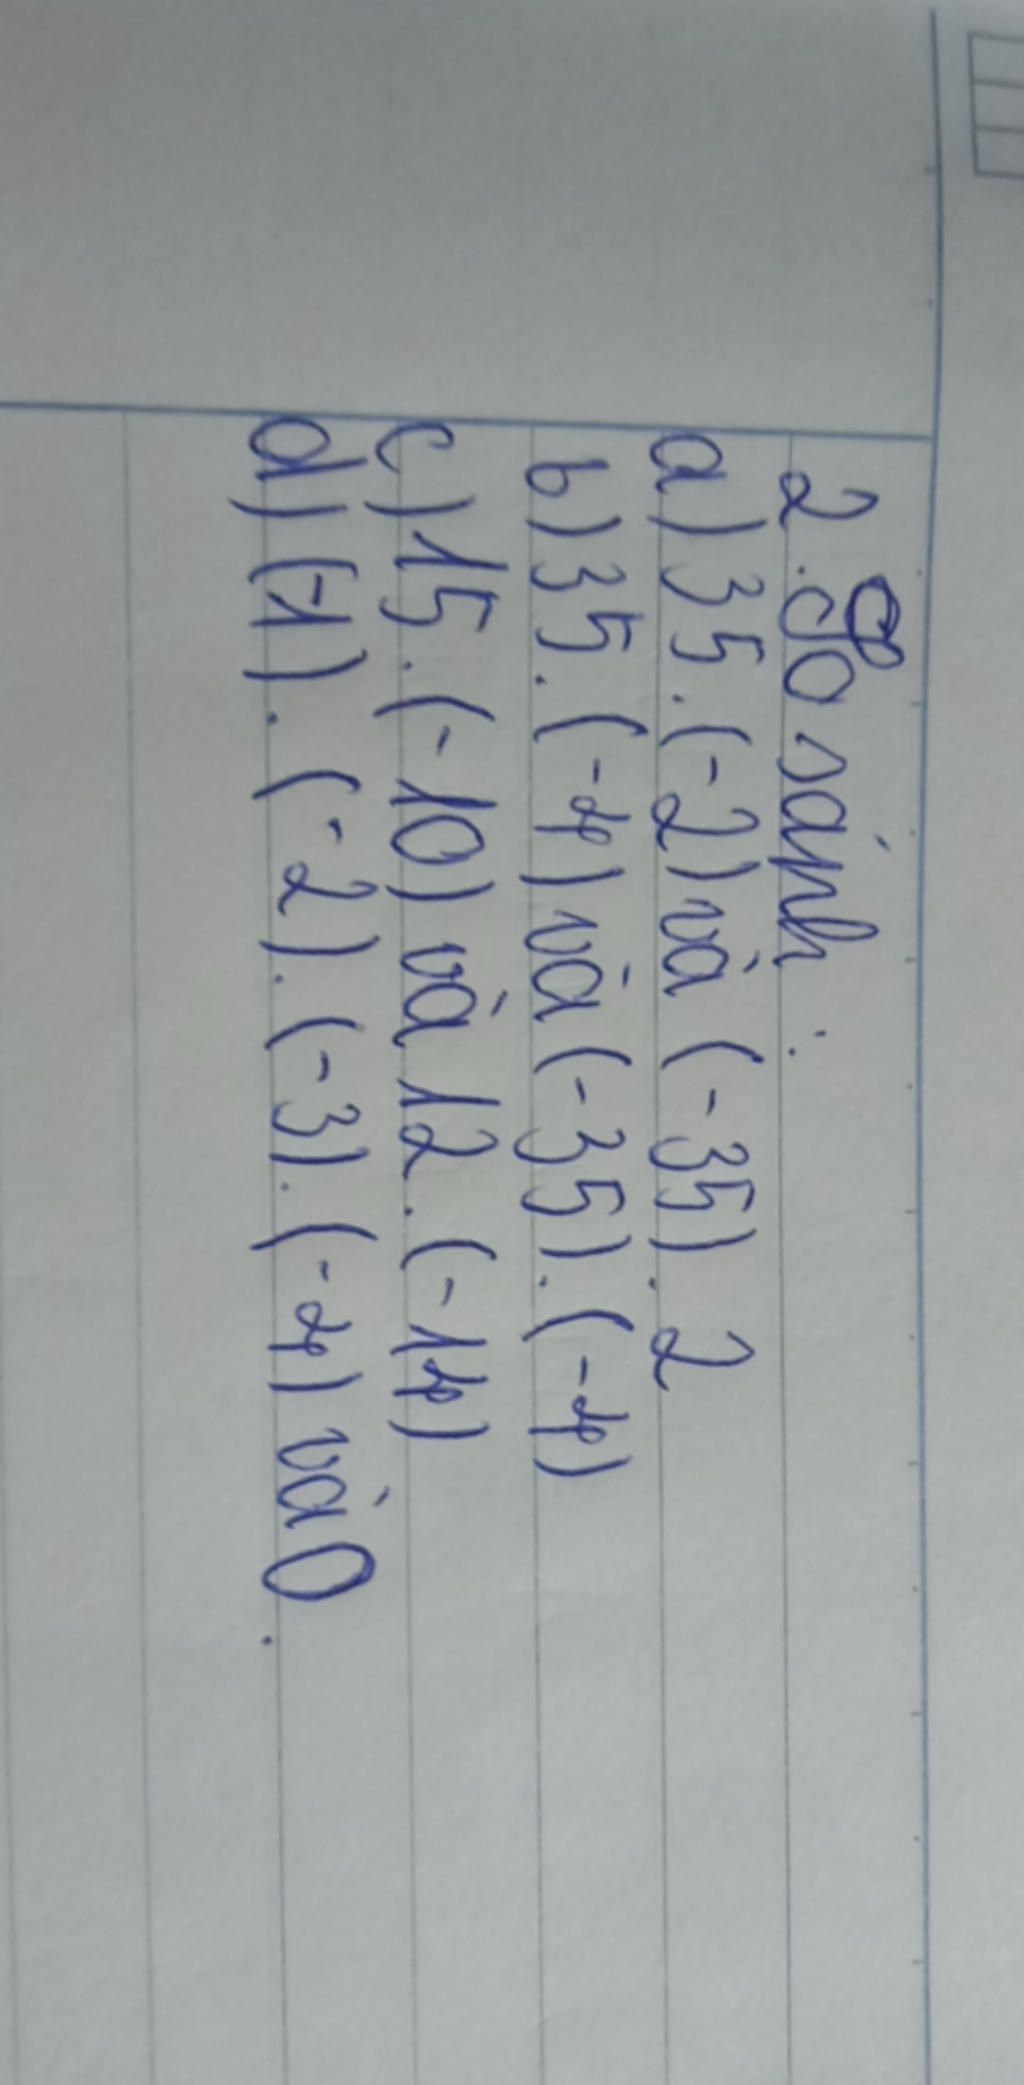 2. So sánh :
a) 35 . (-2) và (-35) . 2
b) 35 . (-4) và (-35) . (-4)
c) 15 . (-10) và 12 . (-14)
d) (-1) . (-2) . (-3) . (-4) và 0 .